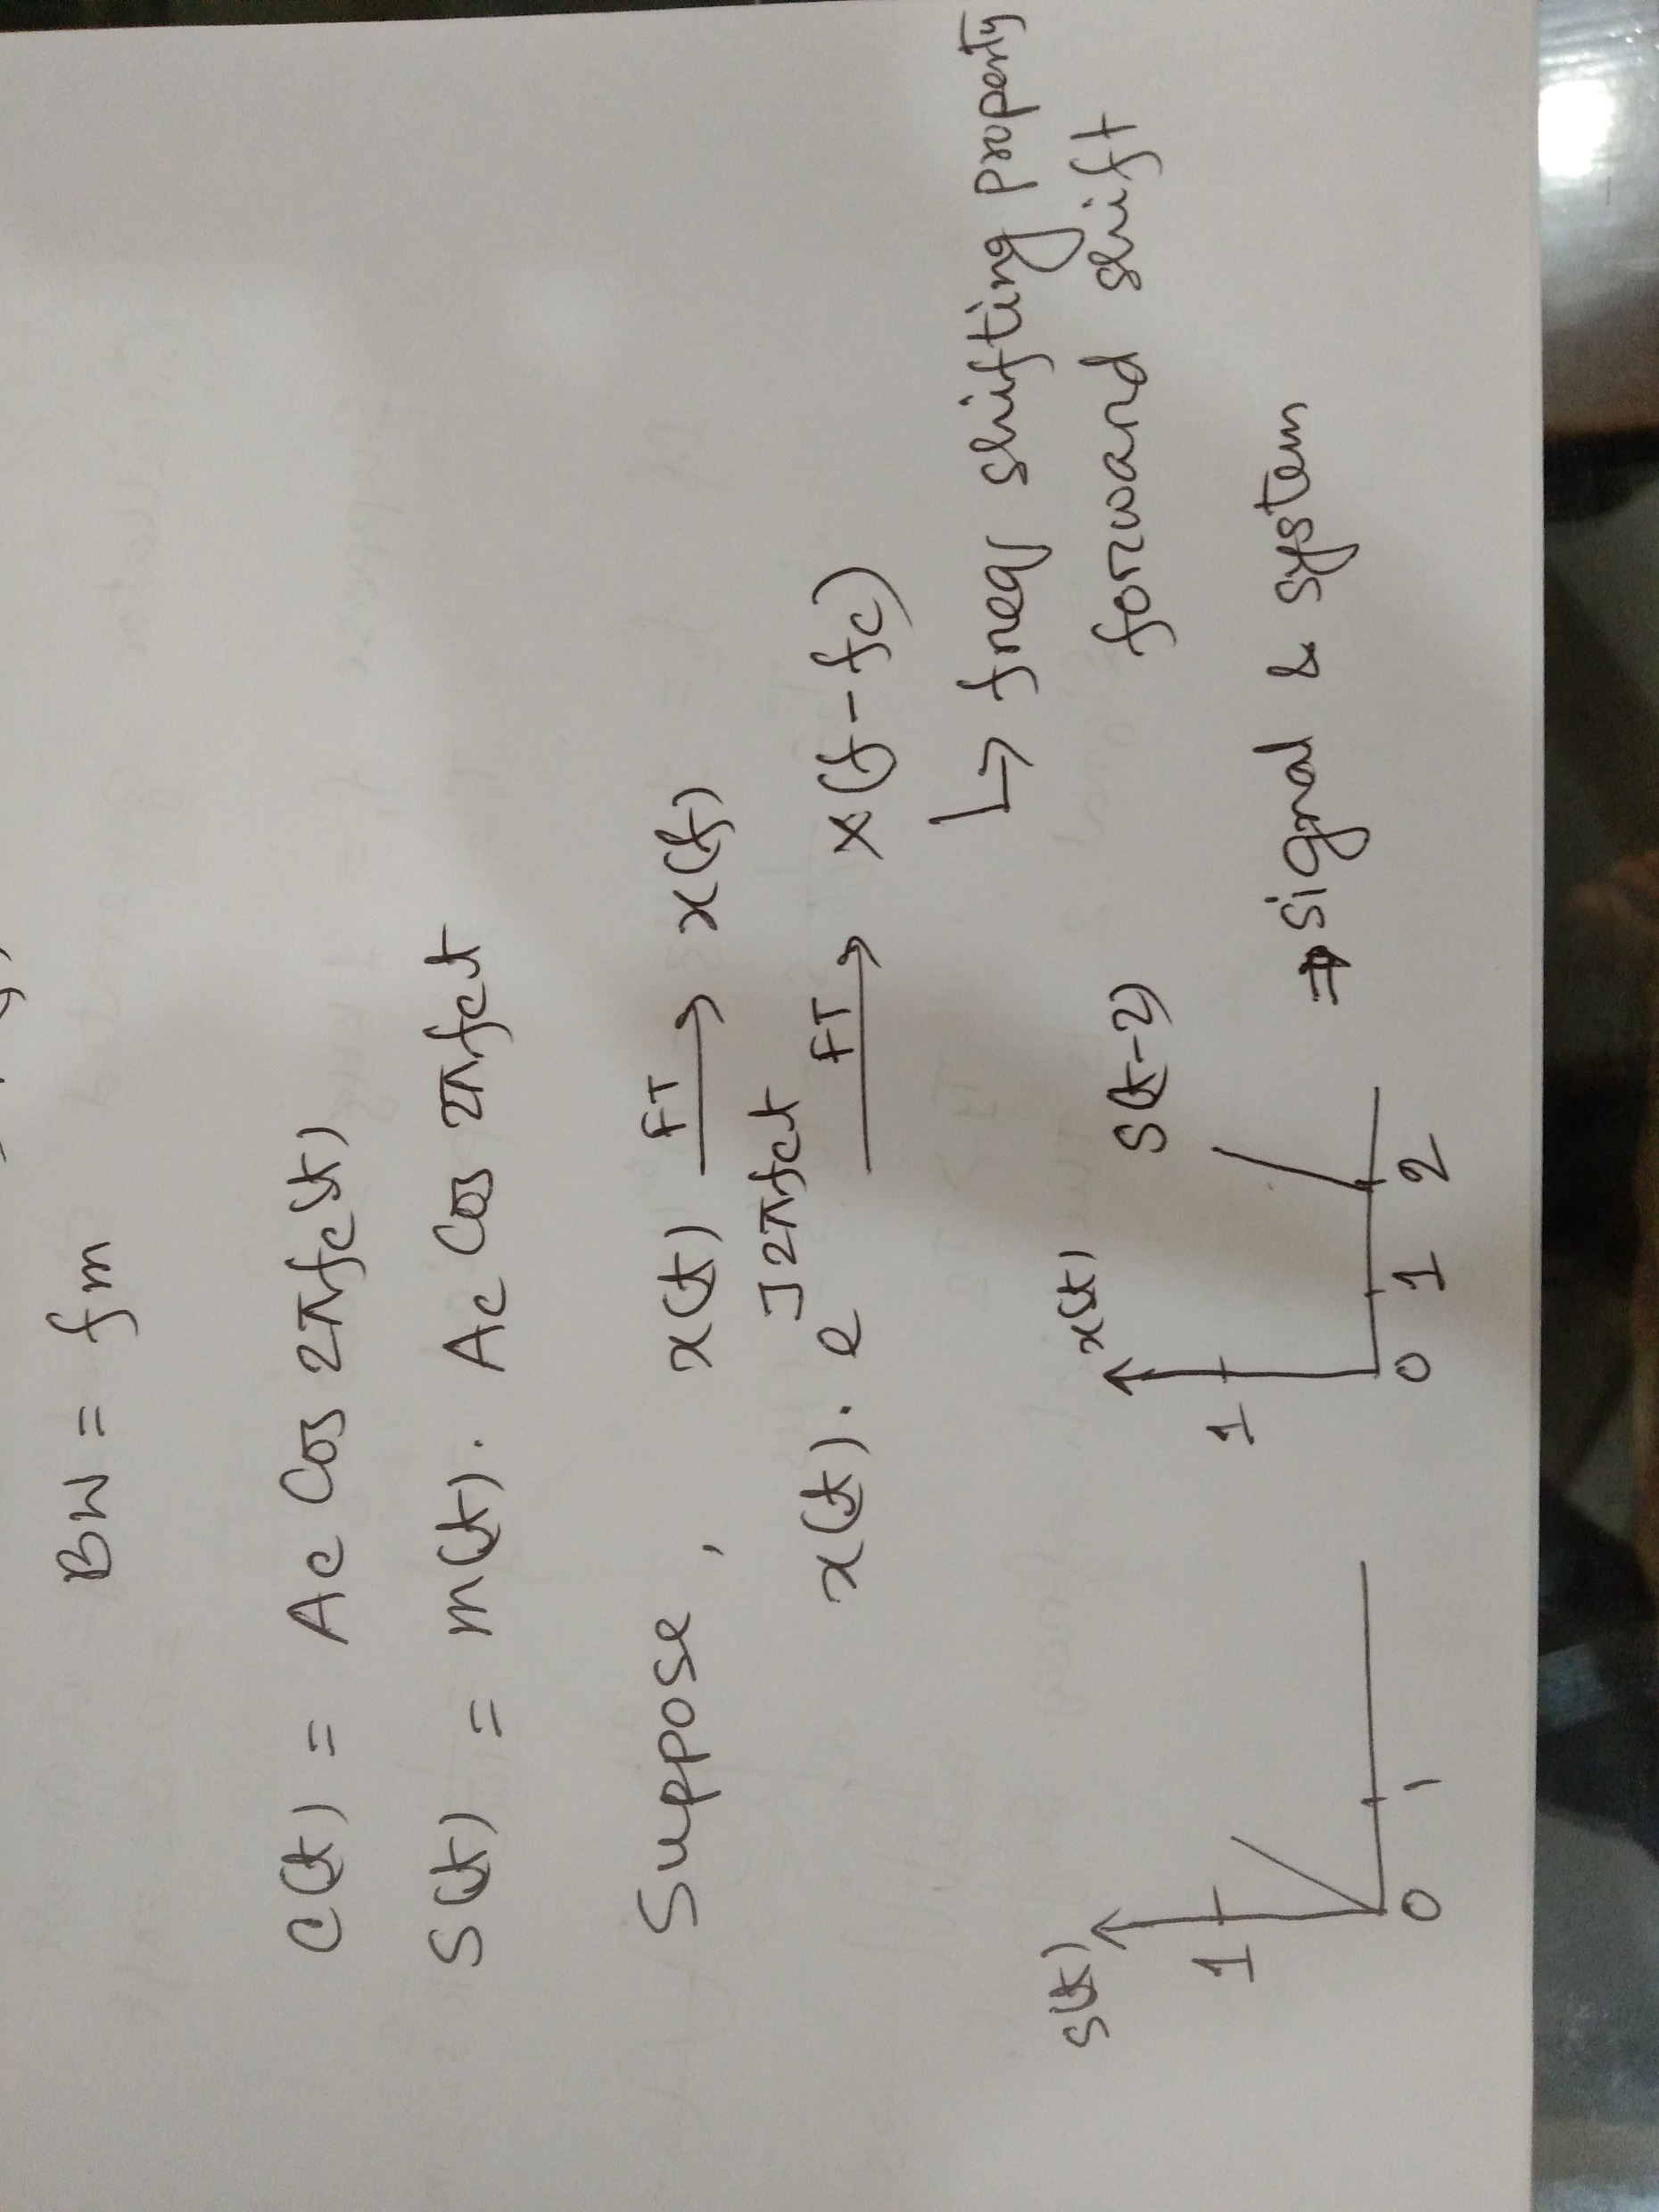 BW = fm
C(t) = Ac Cos 2πfc(t)
S(t) = m(t). Ac Cos 2πfct
Suppose, x(t) FT→ x(f)
x(t). e^J2πfct FT→ x(f-fc)
↳ freq shifting property
forward shift
S(t)
1
0 1
x(t)
S(t-2)
1
0 1 2
⇒ signal & system